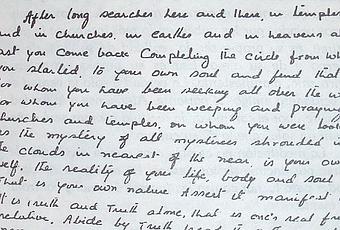 After long searches here and there, in temples
and in churches, in earths and in heavens at
last you come back Completing the circle from wh
you started, to your own soul and find that
for whom you have been seeking all over the w
for whom you have been weeping and praying
churches and temples, on whom you were look
as the mystery of all mysteries shrouded in
the clouds in nearest of the near, is your own
self. The reality of your life, body and soul
That is your own nature Assert it manifest
It is truth and Truth alone, that is one's real
relative. Abide by Truth